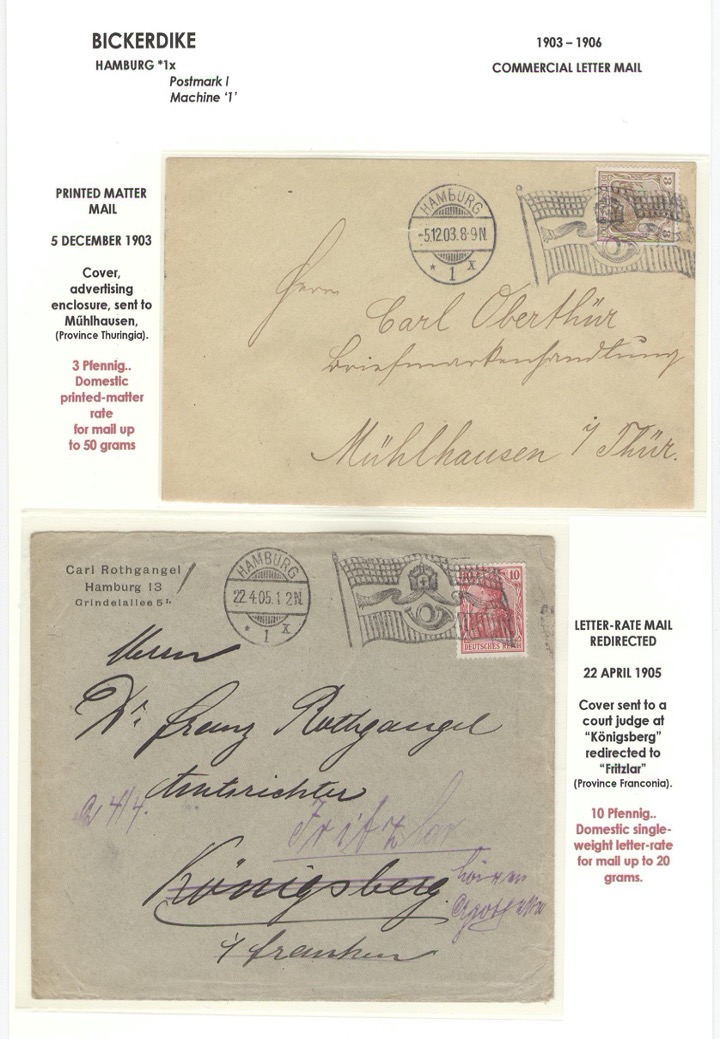 BICKERDIKE
HAMBURG *1x
Postmark I
Machine ‘1’
1903 – 1906
COMMERCIAL LETTER MAIL
PRINTED MATTER
MAIL
5 DECEMBER 1903
Cover,
advertising
enclosure, sent to
Műhlhausen,
(Province Thuringia).
3 Pfennig..
Domestic
printed-matter
rate
for mail up
to 50 grams
HAMBURG
-5.12.03.8-9N.
* 1 x
3
3
Herrn
Carl Oberthür
Briefmarkenhandlung
Mühlhausen i/Thür.
Carl Rothgangel
Hamburg 13
Grindelallee 5 I.
HAMBURG
22.4.05.1-2N.
* 1 x
10
DEUTSCHES REICH
Herrn
Dr. Franz Rothgangel
Amtsrichter
Fritzlar
Königsberg
i/Franken
LETTER-RATE MAIL
REDIRECTED
22 APRIL 1905
Cover sent to a
court judge at
“Königsberg”
redirected to
“Fritzlar”
(Province Franconia).
10 Pfennig..
Domestic single-
weight letter-rate
for mail up to 20
grams.